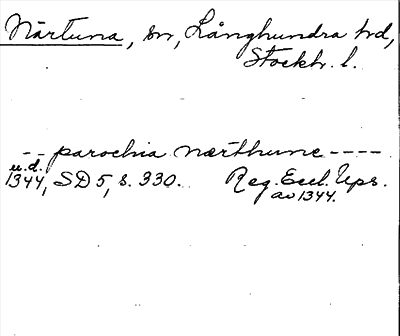 Närtuna, sn, Långhundra hd,
Stockh. l.
-- parochia nærthune ----
u.d.
1344, SD 5, s. 330. Reg. Eccl. Ups.
av 1344.